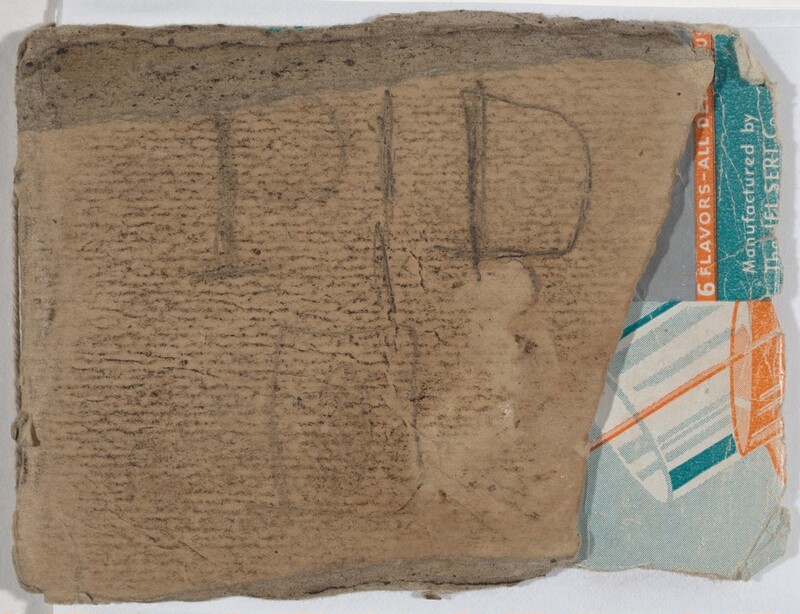 PID
6 FLAVORS-ALL
Manufactured by
The JEL SERT Co